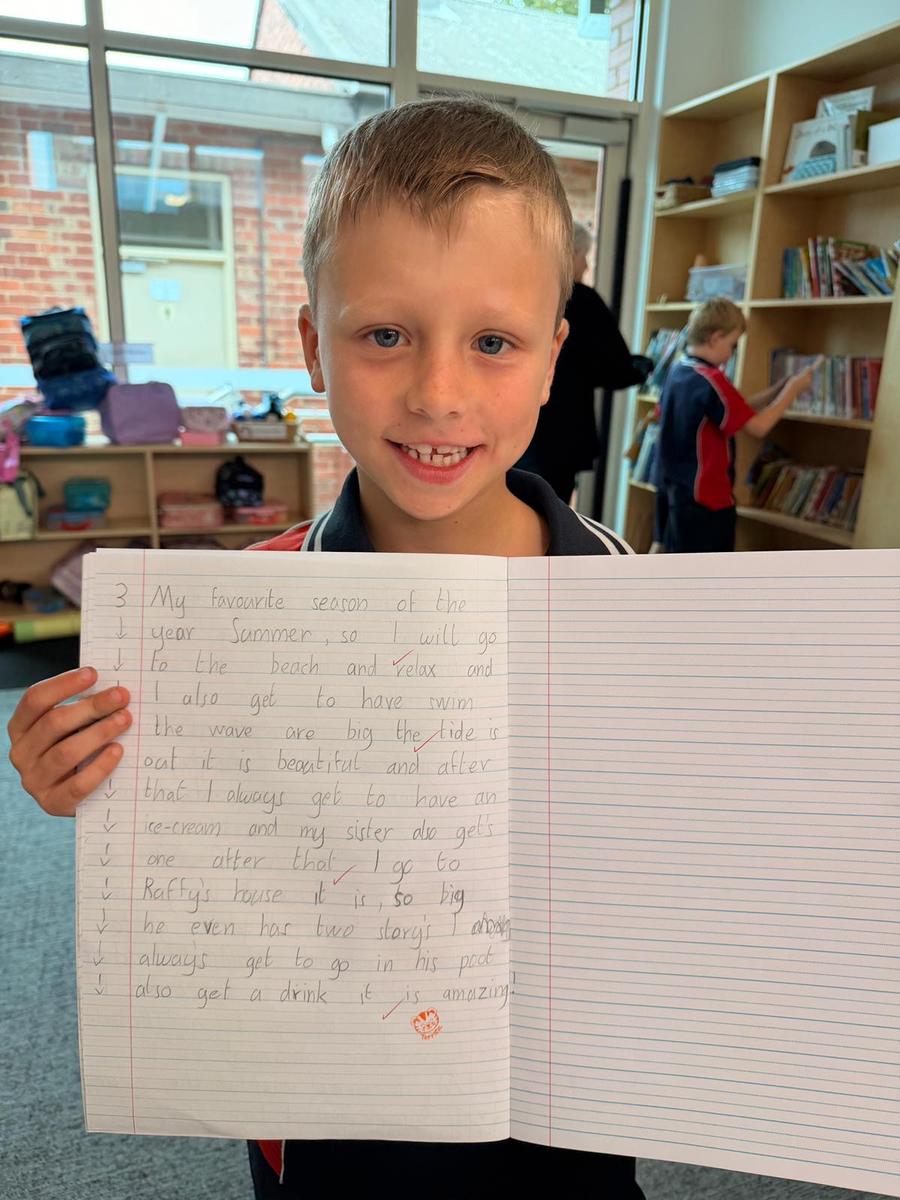 3 My favourite season of the
year Summer, so I will go
to the beach and relax and
I also get to have swim
the wave are big the tide is
out it is beautiful and after
that I always get to have an
ice-cream and my sister also get's
one after that I go to
Raffy's house it is, so big
he even has two story's I
always get to go in his pool
also get a drink it is amazing!